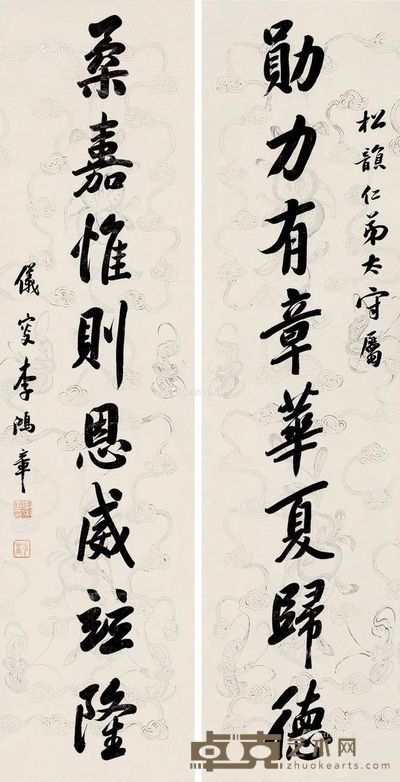 松韻仁弟太守屬
勛力有章華夏歸德
柔嘉惟則恩威竝隆
儀叟李鴻章
卓克艺术网
zhuokearts.com